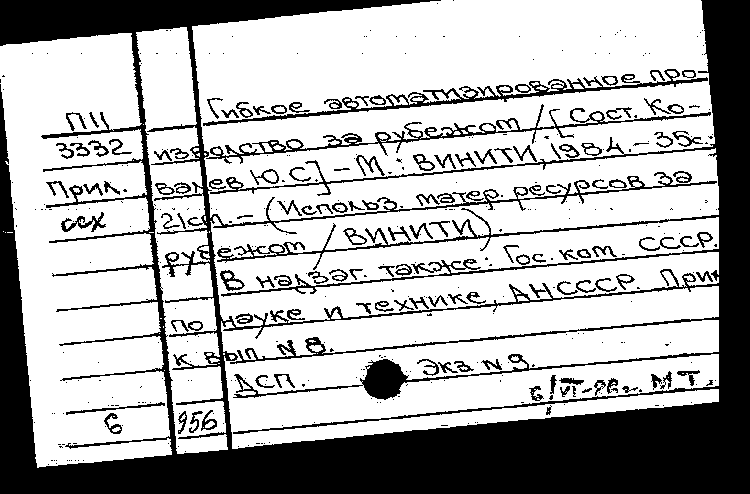 Гибкое автоматизированное про-
ПII
3332 изводство за рубежом / [Сост. Ко-
Прил. валев, Ю.С.] – М.: ВИНИТИ, 1984. – 35с.;
ссх 21см. – (Использ. матер. ресурсов за
рубежом / ВИНИТИ).
В надзаг. также: Гос. ком. СССР.
по науке и технике, АНСССР. Прил
к вып. N 8.
ДСП. Экз N 9.
6/VI-86г. М Т.
6 956